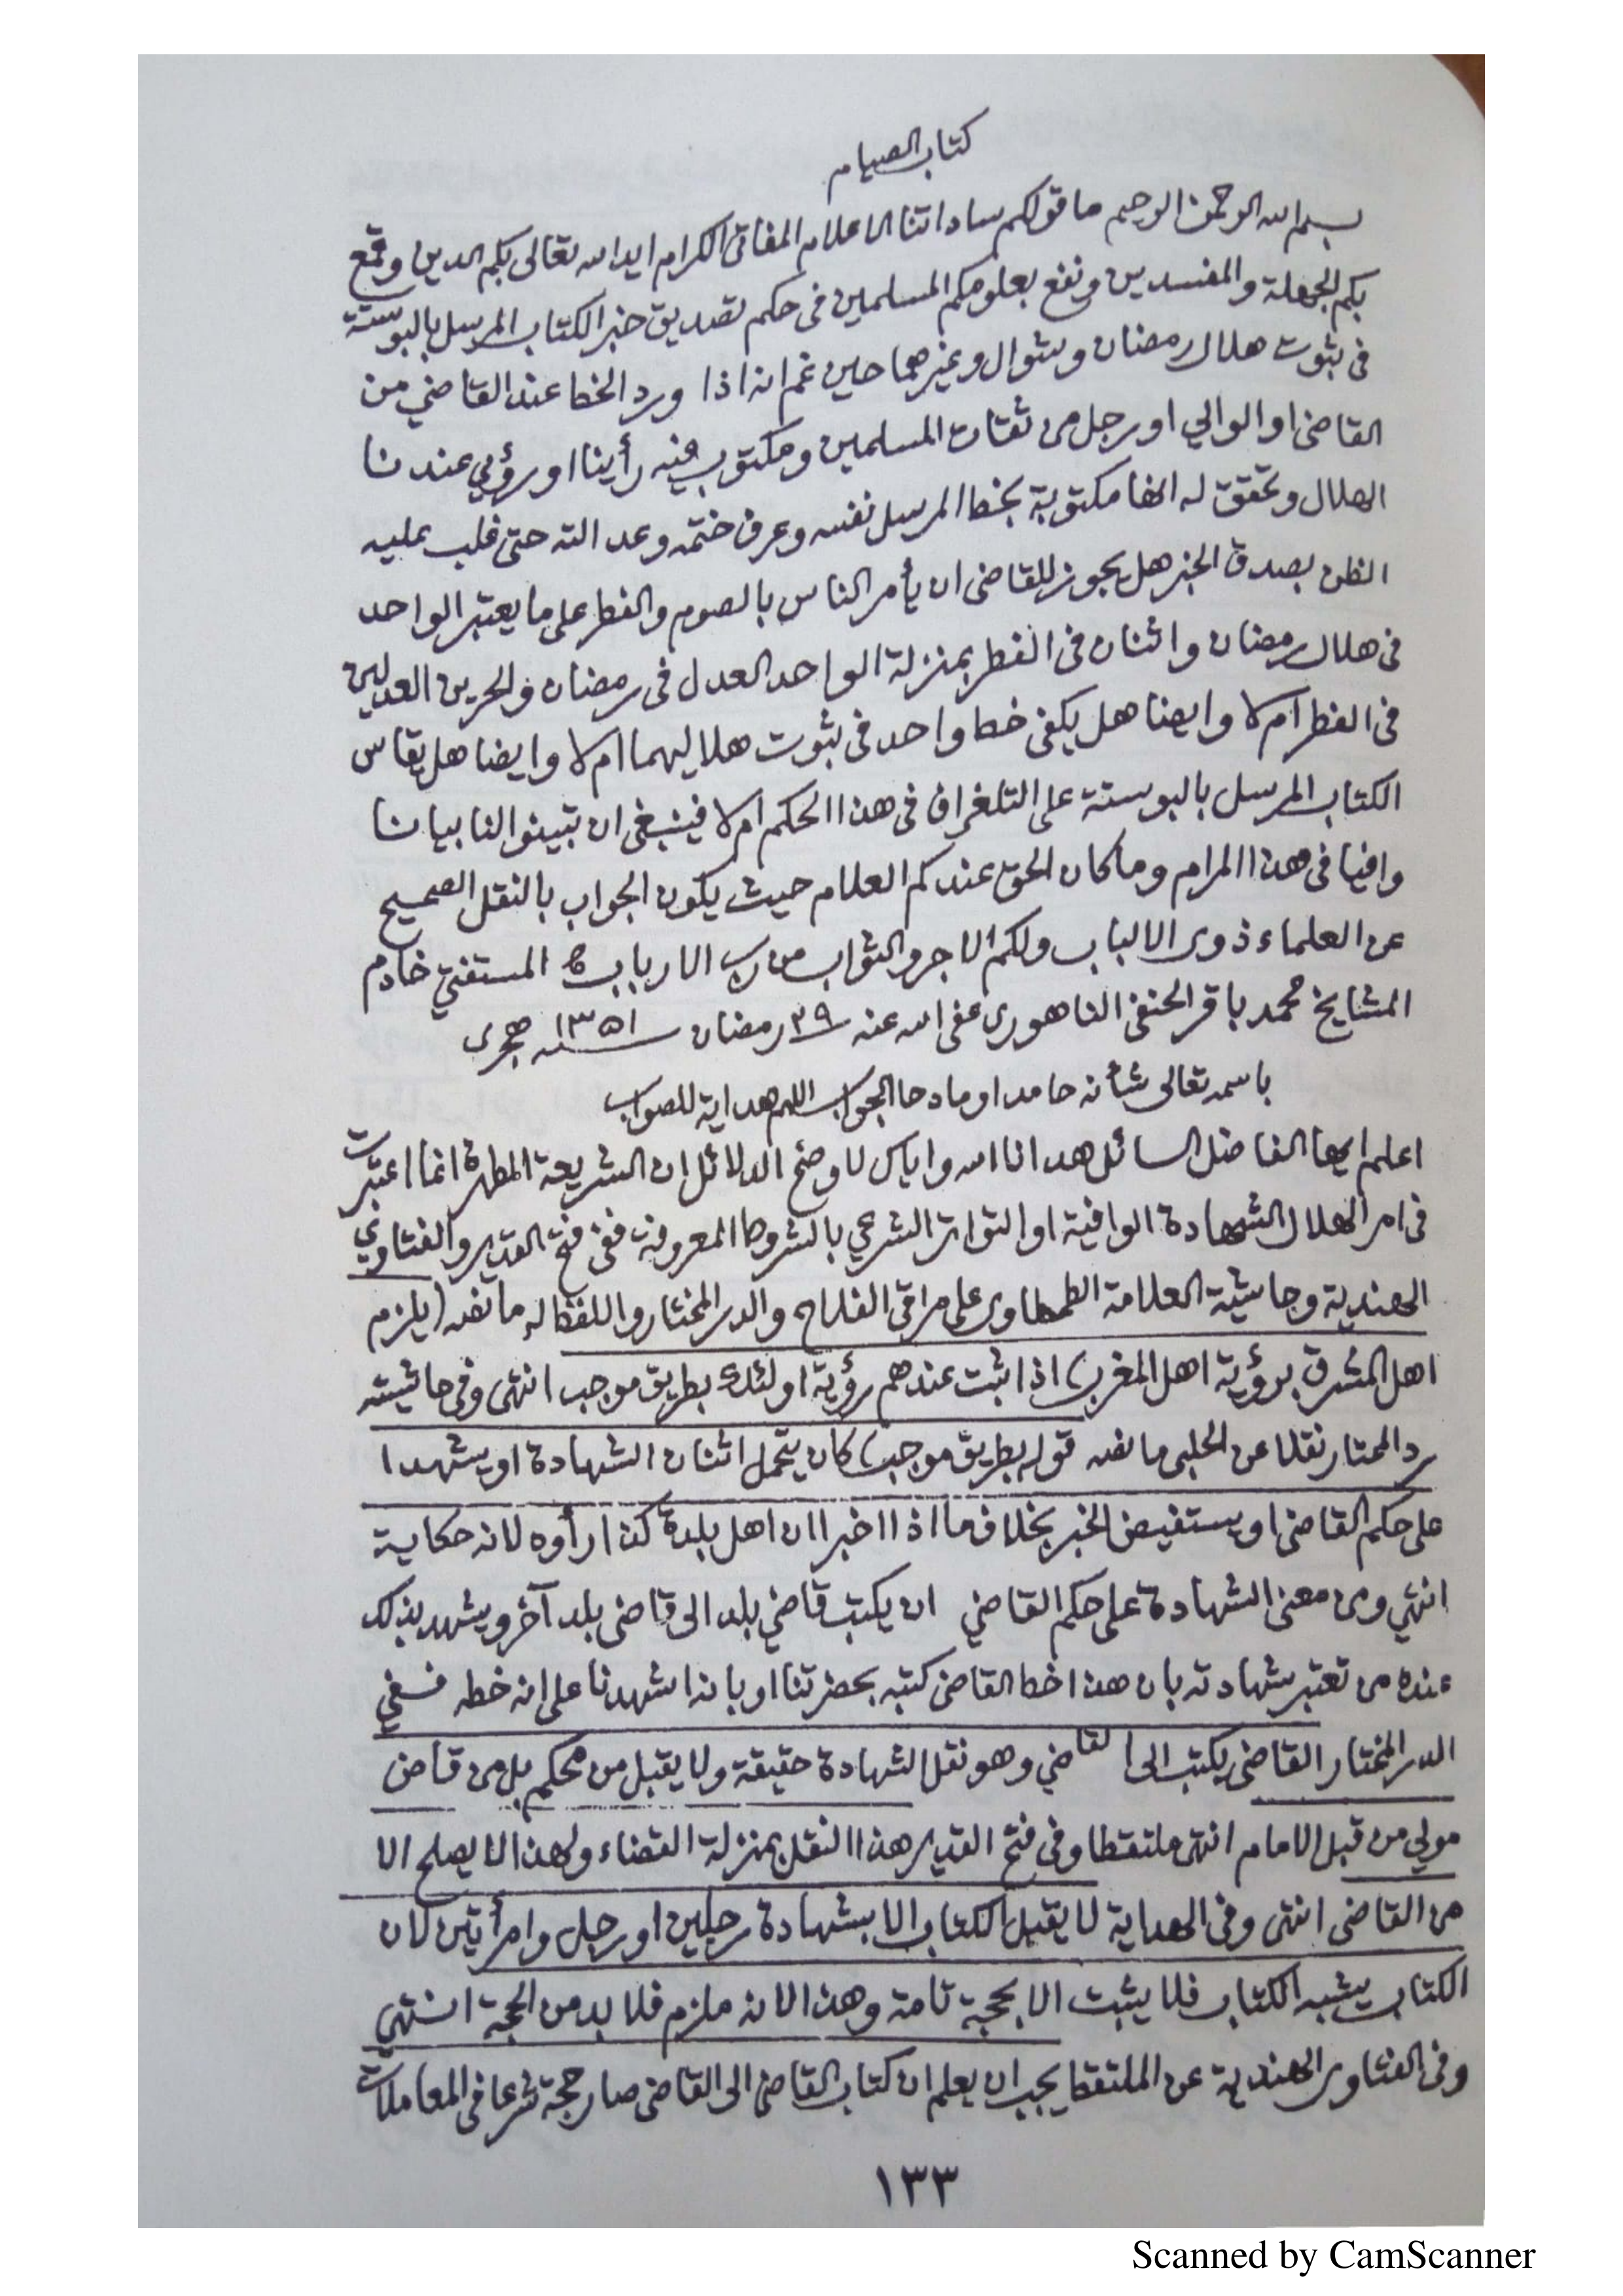 كتاب الصيام
بسم الله الرحمن الرحيم ما قولكم ساداتنا الاعلام المفاتى الكرام ايد الله تعالى بكم الدين وقمع
بكم الجهلة والمفسدين ونفع بعلومكم المسلمين فى حكم تصديق خبر الكتاب المرسل بالبوستة
فى ثبوت هلال رمضان وشوال وغيرهما حين غم انه اذا ورد الخط عند القاضي من
القاضى او الوالي او رجل من ثقات المسلمين ومكتوب فيه رأينا او رؤي عندنا
الهلال وتحقق له انها مكتوبة بخط المرسل نفسه وعرف ختمه وعدالته حتى غلب عليه
الظن بصدق الخبر هل يجوز للقاضى ان يأمر الناس بالصوم والفطر على ما يعتبر الواحد
فى هلال رمضان واثنان فى الفطر بمنزلة الواحد العدل فى رمضان والحرين العدلين
فى الفطر ام لا وايضا هل يكفى خط واحد فى ثبوت هلاليهما ام لا وايضا هل يقاس
الكتاب المرسل بالبوستة على التلغراف فى هذا الحكم ام لا فينبغى ان تبينوا لنا بيانا
وافيا فى هذا المرام وما كان الحق عندكم العلام حيث يكون الجواب بالنقل الصحيح
عن العلماء ذوى الالباب ولكم الاجر والثواب من رب الارباب المستفتي خادم
المشايخ محمد باقر الحنفى الناهورى عفى الله عنه ٢٩ رمضان سنه ١٣٥١ هجرى
باسمه تعالى شأنه حامدا ومادحا الجواب اللهم هداية للصواب
اعلم ايها الفاضل السائل هدانا الله واياك لاوضح الدلائل ان الشريعة المطهرة انما اعتبرت
فى امر الهلال الشهادة الوافية او التواتر الشرعي بالشروط المعروفة ففى فتح القدير والفتاوي
الهندية وحاشية العلامة الطحطاوى على مراقى الفلاح والدر المختار واللفظ له ما نصه (يلزم
اهل المشرق برؤية اهل المغرب) اذا ثبت عندهم رؤية اولئك بطريق موجب انتهى وفى حاشيته
رد المحتار نقلا عن الحلبى ما نصه قوله بطريق موجب) كان يتحمل اثنان الشهادة او يشهدا
على حكم القاضى او يستفيض الخبر بخلاف ما اذا اخبرا ان اهل بلدة كذا رأوه لانه حكاية
انتهي ومن معنى الشهادة على حكم القاضي ان يكتب قاضي بلد الى قاضى بلد آخر ويشهد بذلك
عنده من تعتبر شهادته بان هذا خط القاضى كتبه بحضرتنا او بانه اشهدنا على انه خطه ففي
الدر المختار القاضى يكتب الى القاضي وهو نقل الشهادة حقيقة ولا يقبل من محكم بل من قاض
مولي من قبل الامام انتهى ملتقطا وفى فتح القدير هذا النقل بمنزلة القضاء ولهذا لا يصلح الا
من القاضى انتهى وفى الهداية لا يقبل الكتاب الا بشهادة رجلين او رجل وامرأتين لان
الكتاب يشبه الكتاب فلا يثبت الا بحجة تامة وهذا لانه ملزم فلا بد من الحجة انتهي
وفى الفتاوى الهندية عن الملتقط يجب ان يعلم ان كتاب القاضى الى القاضى صار حجة شرعا فى المعاملات
١٣٣
Scanned by CamScanner